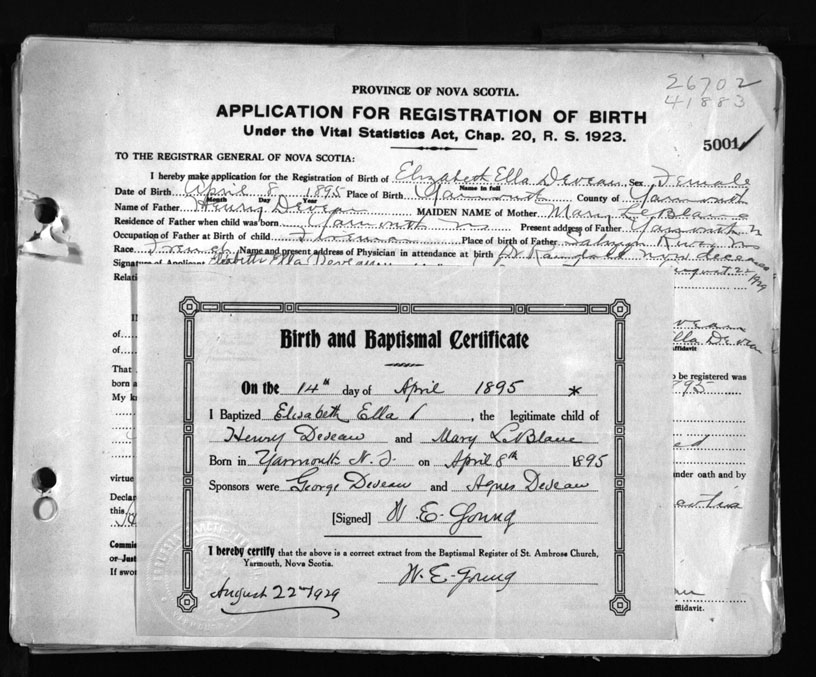 26702
41883
PROVINCE OF NOVA SCOTIA.
APPLICATION FOR REGISTRATION OF BIRTH
Under the Vital Statistics Act, Chap. 20, R. S. 1923.
5001
TO THE REGISTRAR GENERAL OF NOVA SCOTIA:
I hereby make application for the Registration of Birth of Elizabeth Ella Deveau Sex Female
Name in full
Date of Birth April 8 1895 Place of Birth Yarmouth County of Yarmouth
Month Day Year
Name of Father Henry Deveau MAIDEN NAME of Mother Mary LeBlanc
Residence of Father when child was born Yarmouth Present address of Father Yarmouth
Occupation of Father at Birth of child Fireman Place of birth of Father River
Race French Name and present address of Physician in attendance at birth Dr now deceased
Signature of Applicant Elizabeth Ella Deveau August 22
1929
Relati
of
ella Deveau
of
ffidavit
That
o be registered was
born a
My k
virtue
nder oath and by
Declar
this
Commis
or Just
If swor
ffidavit.
Birth and Baptismal Certificate
On the 14th day of April 1895 *
I Baptized Elisabeth Ella, the legitimate child of
Henry Deveau and Mary LeBlanc
Born in Yarmouth N.S. on April 8th 1895
Sponsors were George Deveau and Agnes Deveau
[Signed] W. E. Young
I hereby certify that the above is a correct extract from the Baptismal Register of St. Ambrose Church,
Yarmouth, Nova Scotia.
W. E. Young
August 22nd 1929